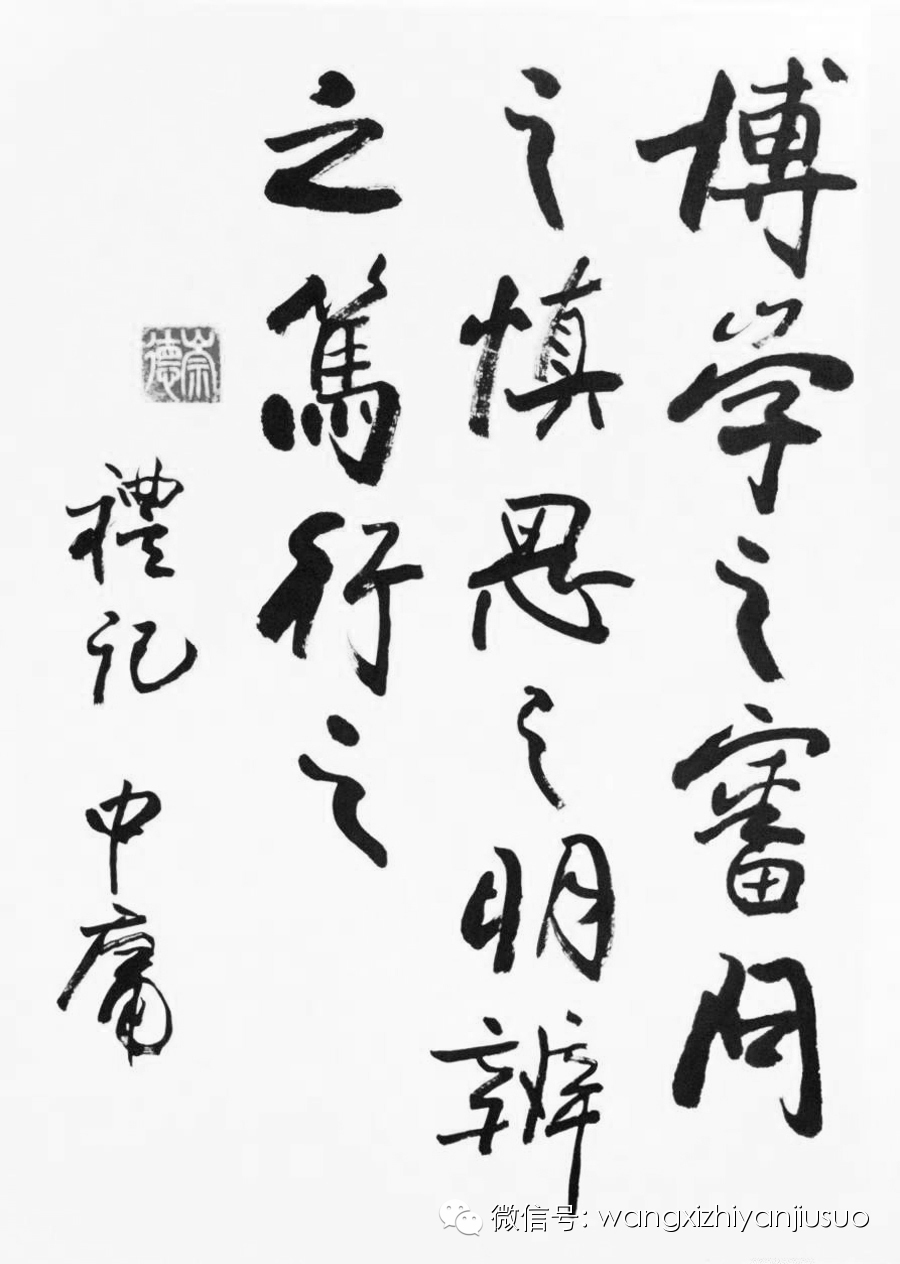 博学之審問
之慎思之明辨
之篤行之
禮记 中庸
崇德
微信号: wangxizhiyanjiusuo